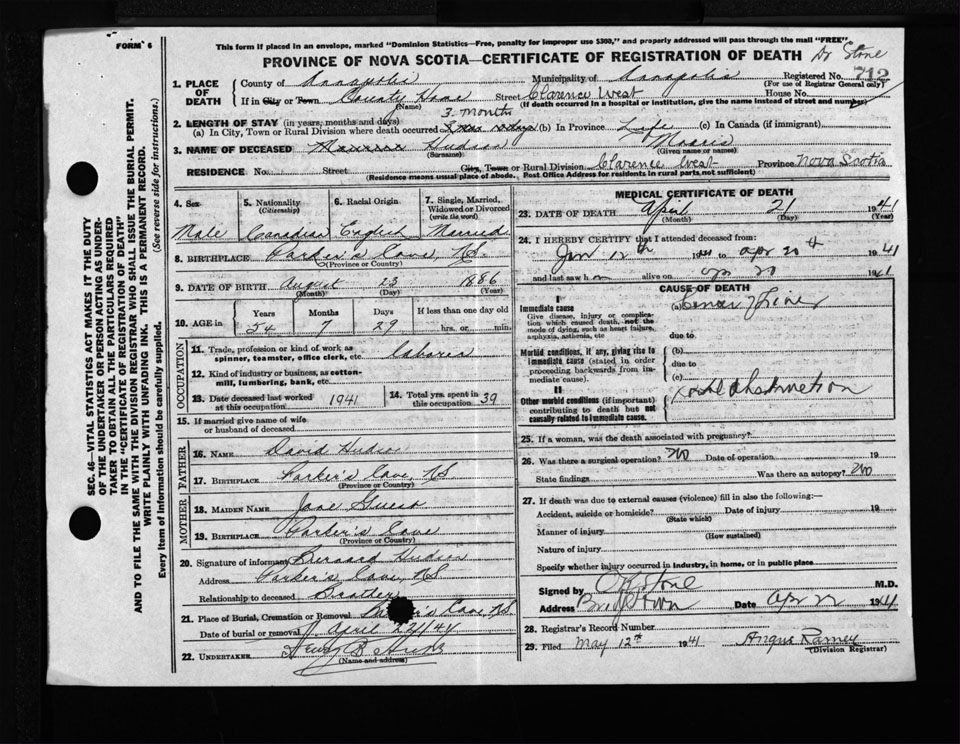 FORM 6
This form if placed in an envelope, marked "Dominion Statistics—Free, penalty for improper use $300," and properly addressed will pass through the mail "FREE".
PROVINCE OF NOVA SCOTIA—CERTIFICATE OF REGISTRATION OF DEATH Dr Stone
1. PLACE OF DEATH County of Annapolis Municipality of Annapolis Registered No. 712
(For use of Registrar General only)
If in City or Town County Home Street Clarence West House No.
(Name) (If death occurred in a hospital or institution, give the name instead of street and number)
3 months
2. LENGTH OF STAY (in years, months and days)
(a) In City, Town or Rural Division where death occurred (b) In Province Life (c) In Canada (if immigrant)
3. NAME OF DECEASED Hudson Morris
(Surname) (Given name or names)
RESIDENCE No. Street City, Town or Rural Division Clarence West Province Nova Scotia
(Residence means usual place of abode. Post Office Address for residents in rural parts not sufficient)
4. Sex Male
5. Nationality (Citizenship) Canadian
6. Racial Origin English
7. Single, Married, Widowed or Divorced (write the word) Married
8. BIRTHPLACE Parker's Cove, N.S.
(Province or Country)
9. DATE OF BIRTH August 23 1886
(Month) (Day) (Year)
10. AGE in Years Months Days If less than one day old
54 7 29 hrs. or min.
OCCUPATION
11. Trade, profession or kind of work as spinner, teamster, office clerk, etc. laborer
12. Kind of industry or business, as cotton-mill, lumbering, bank, etc.
13. Date deceased last worked at this occupation 1941
14. Total yrs. spent in this occupation 39
15. If married give name of wife or husband of deceased
FATHER
16. NAME David Hudson
17. BIRTHPLACE Parker's Cove, N.S.
(Province or Country)
MOTHER
18. MAIDEN NAME Jane Guest
19. BIRTHPLACE Parker's Cove
(Province or Country)
20. Signature of informant Bernard Hudson
Address Parker's Cove, N.S.
Relationship to deceased Brother
21. Place of Burial, Cremation or Removal Parker's Cove, N.S.
Date of burial or removal April 22/41
22. UNDERTAKER
(Name and address)
MEDICAL CERTIFICATE OF DEATH
23. DATE OF DEATH April 21 1941
(Month) (Day) (Year)
24. I HEREBY CERTIFY that I attended deceased from:
Jan 12th 1941 to apr 20th 1941
and last saw h m alive on apr 20 1941
CAUSE OF DEATH
I
Immediate cause (a) Cancer of Liver
Give disease, injury or complication which caused death, not the mode of dying, such as heart failure, asphyxia, asthenia, etc
due to
Morbid conditions, if any, giving rise to immediate cause (stated in order proceeding backwards from immediate cause).
(b)
due to
(c)
II
Other morbid conditions (if important) contributing to death but not causally related to immediate cause. obstruction
25. If a woman, was the death associated with pregnancy?
26. Was there a surgical operation? no Date of operation 19
State findings Was there an autopsy? no
27. If death was due to external causes (violence) fill in also the following:
Accident, suicide or homicide? Date of injury 19
(State which)
Manner of injury
(How sustained)
Nature of injury
Specify whether injury occurred in industry, in home, or in public place
Signed by Stone M.D.
Address Bridgetown Date apr 22 1941
28. Registrar's Record Number
29. Filed May 12th 1941 Angus Ramey
(Division Registrar)
SEC. 46—VITAL STATISTICS ACT MAKES IT THE DUTY
OF THE UNDERTAKER OR PERSON ACTING AS UNDER-
TAKER TO OBTAIN ALL THE PARTICULARS REQUIRED
IN THE "CERTIFICATE OF REGISTRATION OF DEATH"
AND TO FILE THE SAME WITH THE DIVISION REGISTRAR WHO SHALL ISSUE THE BURIAL PERMIT.
WRITE PLAINLY WITH UNFADING INK. THIS IS A PERMANENT RECORD.
Every item of information should be carefully supplied. (See reverse side for instructions.)